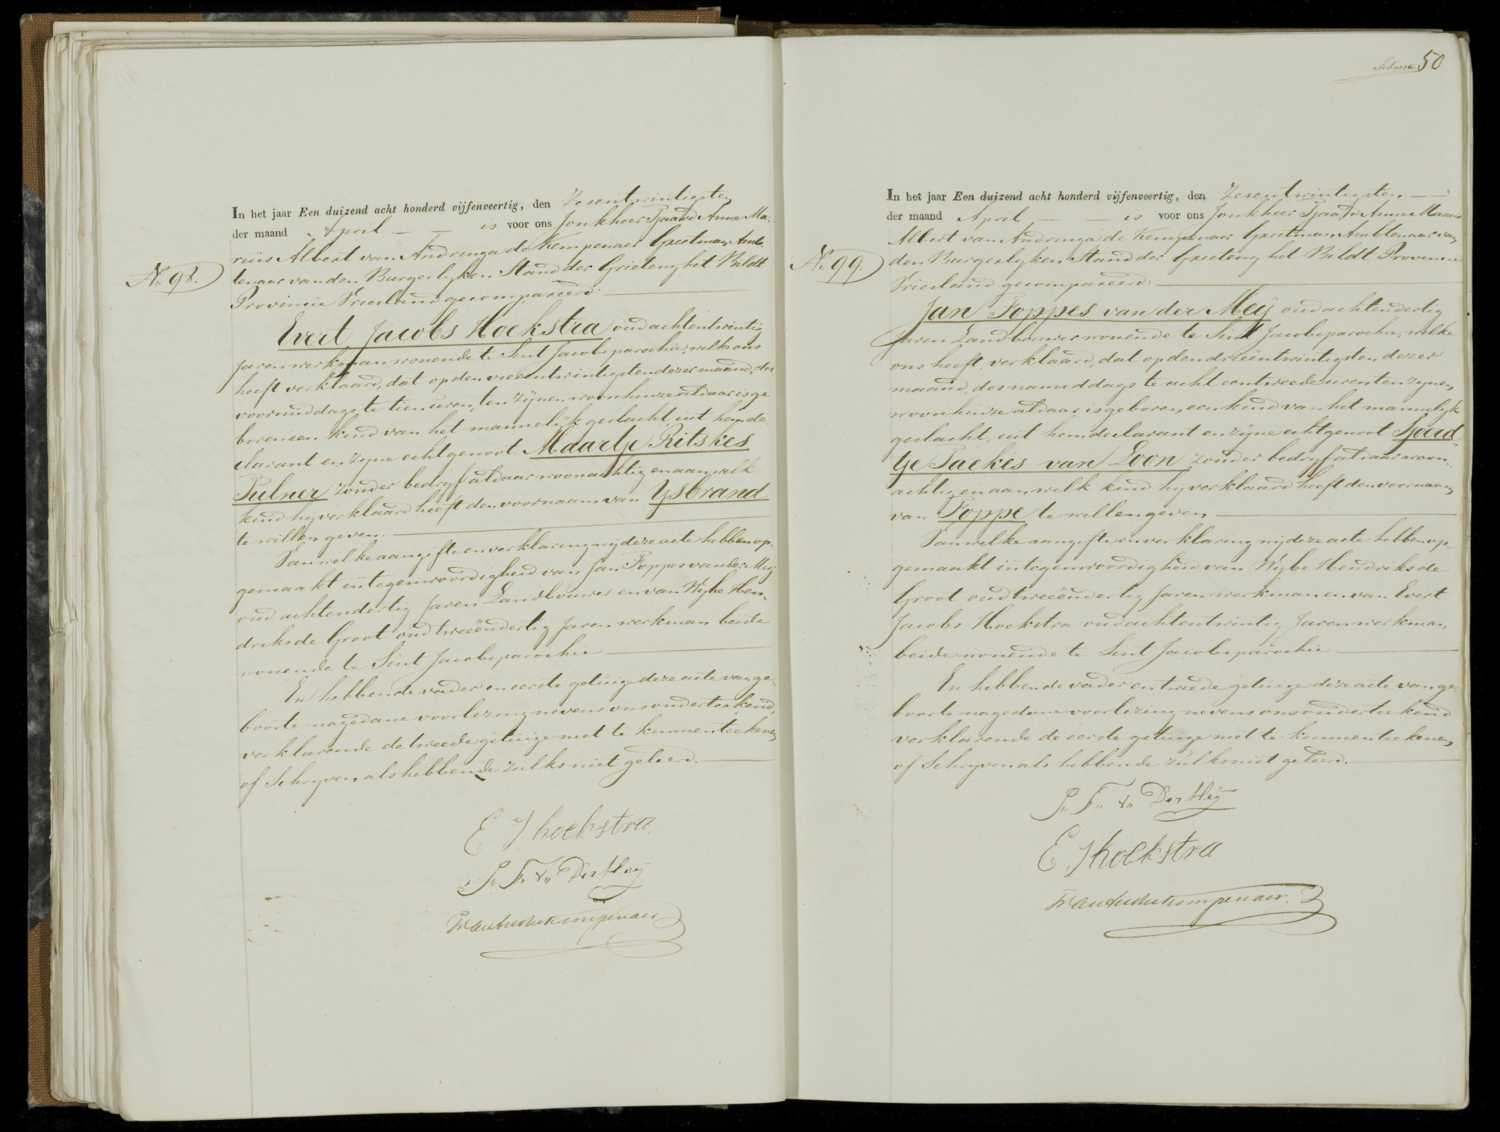 N. 98.
In het jaar Een duizend acht honderd vijfenveertig, den Zesentwintigsten
der maand April is voor ons Jonkheer Tjaard Anne Ma-
rius Albert van Andringa de Kempenaer Grietman Amb-
tenaar van den Burgerlyken Stand der Grieteny het Bildt
Provincie Vriesland gecompareerd:
Evert Jacobs Hoekstra oud achtentwintig
Jaren werkman wonende te Sint Jacobsparochie, welke ons
heeft verklaard, dat op den vierentwintigsten dezer maand, des
voormiddags te tien uren, ten zijnen woonhuize aldaar is ge-
boren een kind van het mannelijk geslacht, uit hem de-
clarant en zijne echtgenoot Maartje Ritskes
Pulner zonder bedryf aldaar woonachtig en aan welk
kind hy verklaard heeft den voornaam van Ysbrand
te willen geven.
Van welke aangifte en verklaring wij deze acte hebben op-
gemaakt in tegenwoordigheid van Jan Foppes van der Meij
oud achtendertig Jaren Landbouwer en van Wybe Hen-
driks de Groot oud tweeëndertig Jaren werkman beide
wonende te Sint Jacobsparochie
En hebben de vader en eerste getuige deze acte van ge-
boorte na gedane voorlezing nevens ons ondertekend,
verklarende de tweede getuige niet te kunnen teekenen
of Schryven als hebbende zulks niet geleerd.
E J hoekstra
J. F. V. Der Meij
50
N. 99.
In het jaar Een duizend acht honderd vijfenveertig, den Zesentwintigsten
der maand April is voor ons Jonkheer Tjaard Anne Marius
Albert van Andringa de Kempenaer Grietman Ambtenaar van
den Burgerlyken Stand der Grieteny het Bildt Provincie
Vriesland gecompareerd:
Jan Foppes van der Meij oud achtendertig
Jaren Landbouwer wonende te Sint Jacobsparochie, welke
ons heeft verklaard, dat op den drieëntwintigsten dezer
maand, des namiddags te acht en twee uren ten zijnen
woonhuize aldaar is geboren een kind van het mannelijk
geslacht, uit hem declarant en zijne echtgenoot Sjoerd-
tje Sackes van Loon zonder bedryf aldaar woon-
achtig en aan welk kind hy verklaard heeft den voornaam
van Foppe te willen geven
Van welke aangifte en verklaring wij deze acte hebben op-
gemaakt in tegenwoordigheid van Wybe Hendriks de
Groot oud tweeëndertig Jaren werkman en van Evert
Jacobs Hoekstra oud achtentwintig Jaren werkman
beide wonende te Sint Jacobsparochie
En hebben de vader en tweede getuige deze acte van ge-
boorte na gedane voorlezing nevens ons onderteekend
verklarende de eerste getuige niet te kunnen teekenen
of Schryven als hebbende zulks niet geleerd.
J. F. V. Der Meij
E J hoekstra